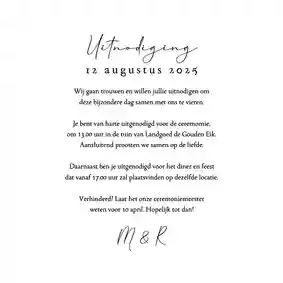 Uitnodiging
12 augustus 2025
Wij gaan trouwen en willen jullie uitnodigen om
deze bijzondere dag samen met ons te vieren.
Je bent van harte uitgenodigd voor de ceremonie,
om 13.00 uur in de tuin van Landgoed de Gouden Eik.
Aansluitend proosten we samen op de liefde.
Daarnaast ben je uitgenodigd voor het diner en feest
dat vanaf 17.00 uur zal plaatsvinden op dezelfde locatie.
Verhinderd? Laat het onze ceremoniemeester
weten voor 10 april. Hopelijk tot dan!
M & R